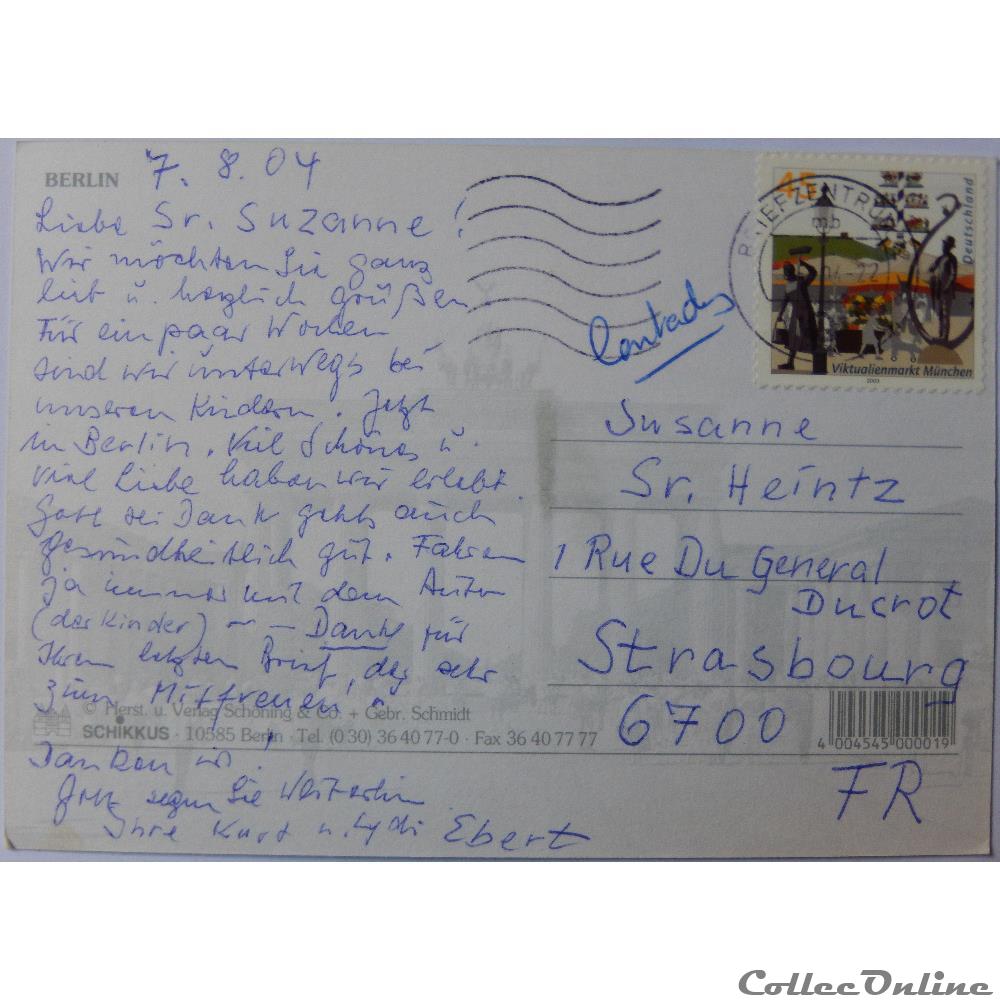 BERLIN 7. 8. 04
Liebe Sr. Suzanne!
Wir möchten Sie ganz
lieb u. herzlich grüßen
Für ein paar Wochen
sind wir unterwegs bei
unseren Kindern. Jetzt
in Berlin. Viel Schönes u.
viel Liebe haben wir erlebt.
Gott sei Dank gehts auch
gesundheitlich gut. Fahren
ja immer mit dem Auto
(der Kinder) – – Dank für
Ihren letzten Brief, der sehr
zum Mitfreuen
© Herst. u. Verlag Schöning & Co. + Gebr. Schmidt
SCHIKKUS · 10585 Berlin · Tel. (0 30) 36 40 77-0 · Fax 36 40 77 77
Danken wir!
Gott segne Sie Weiterhin
Ihre Kurt u. Lydi Ebert
BRIEFZENTRUM
mb
45
Deutschland
Viktualienmarkt München
2003
Susanne
Sr. Heintz
1 Rue Du General
Ducrot
Strasbourg
6700
4 004545 000019
FR
CollecOnline